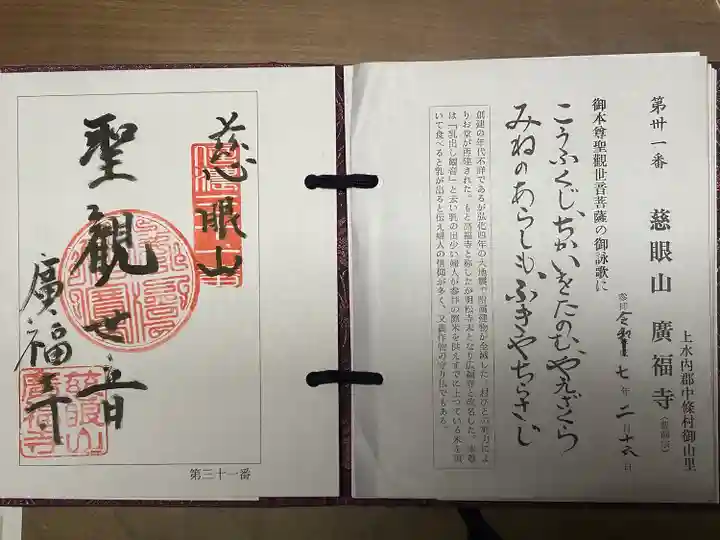 第卅一番 慈眼山 廣福寺(曹洞宗)
上水内郡中條村御山里
参拝 令和 七年 二月十六日
御本尊聖觀世音菩薩の御詠歌に
こうふくじ、ちかいをたのむ、やえざくら
みねのあらしも、ふきやちらさじ
創建の年代不詳であるが弘化四年の大地震で附属建物が全滅した。村びとの努力によ
りお堂が再建された。もと高福寺と称したが明松寺末となり広福寺と改名した。本尊
は「乳出し観音」と云い乳の出少い婦人が参拝の際米を供えすでに上っている米を頂
いて食べると乳が出ると伝え婦人の信仰が多く、又農作物の守り仏でもある。
慈眼山
聖観世音
廣福寺
慈眼山
廣福寺
第三十一番